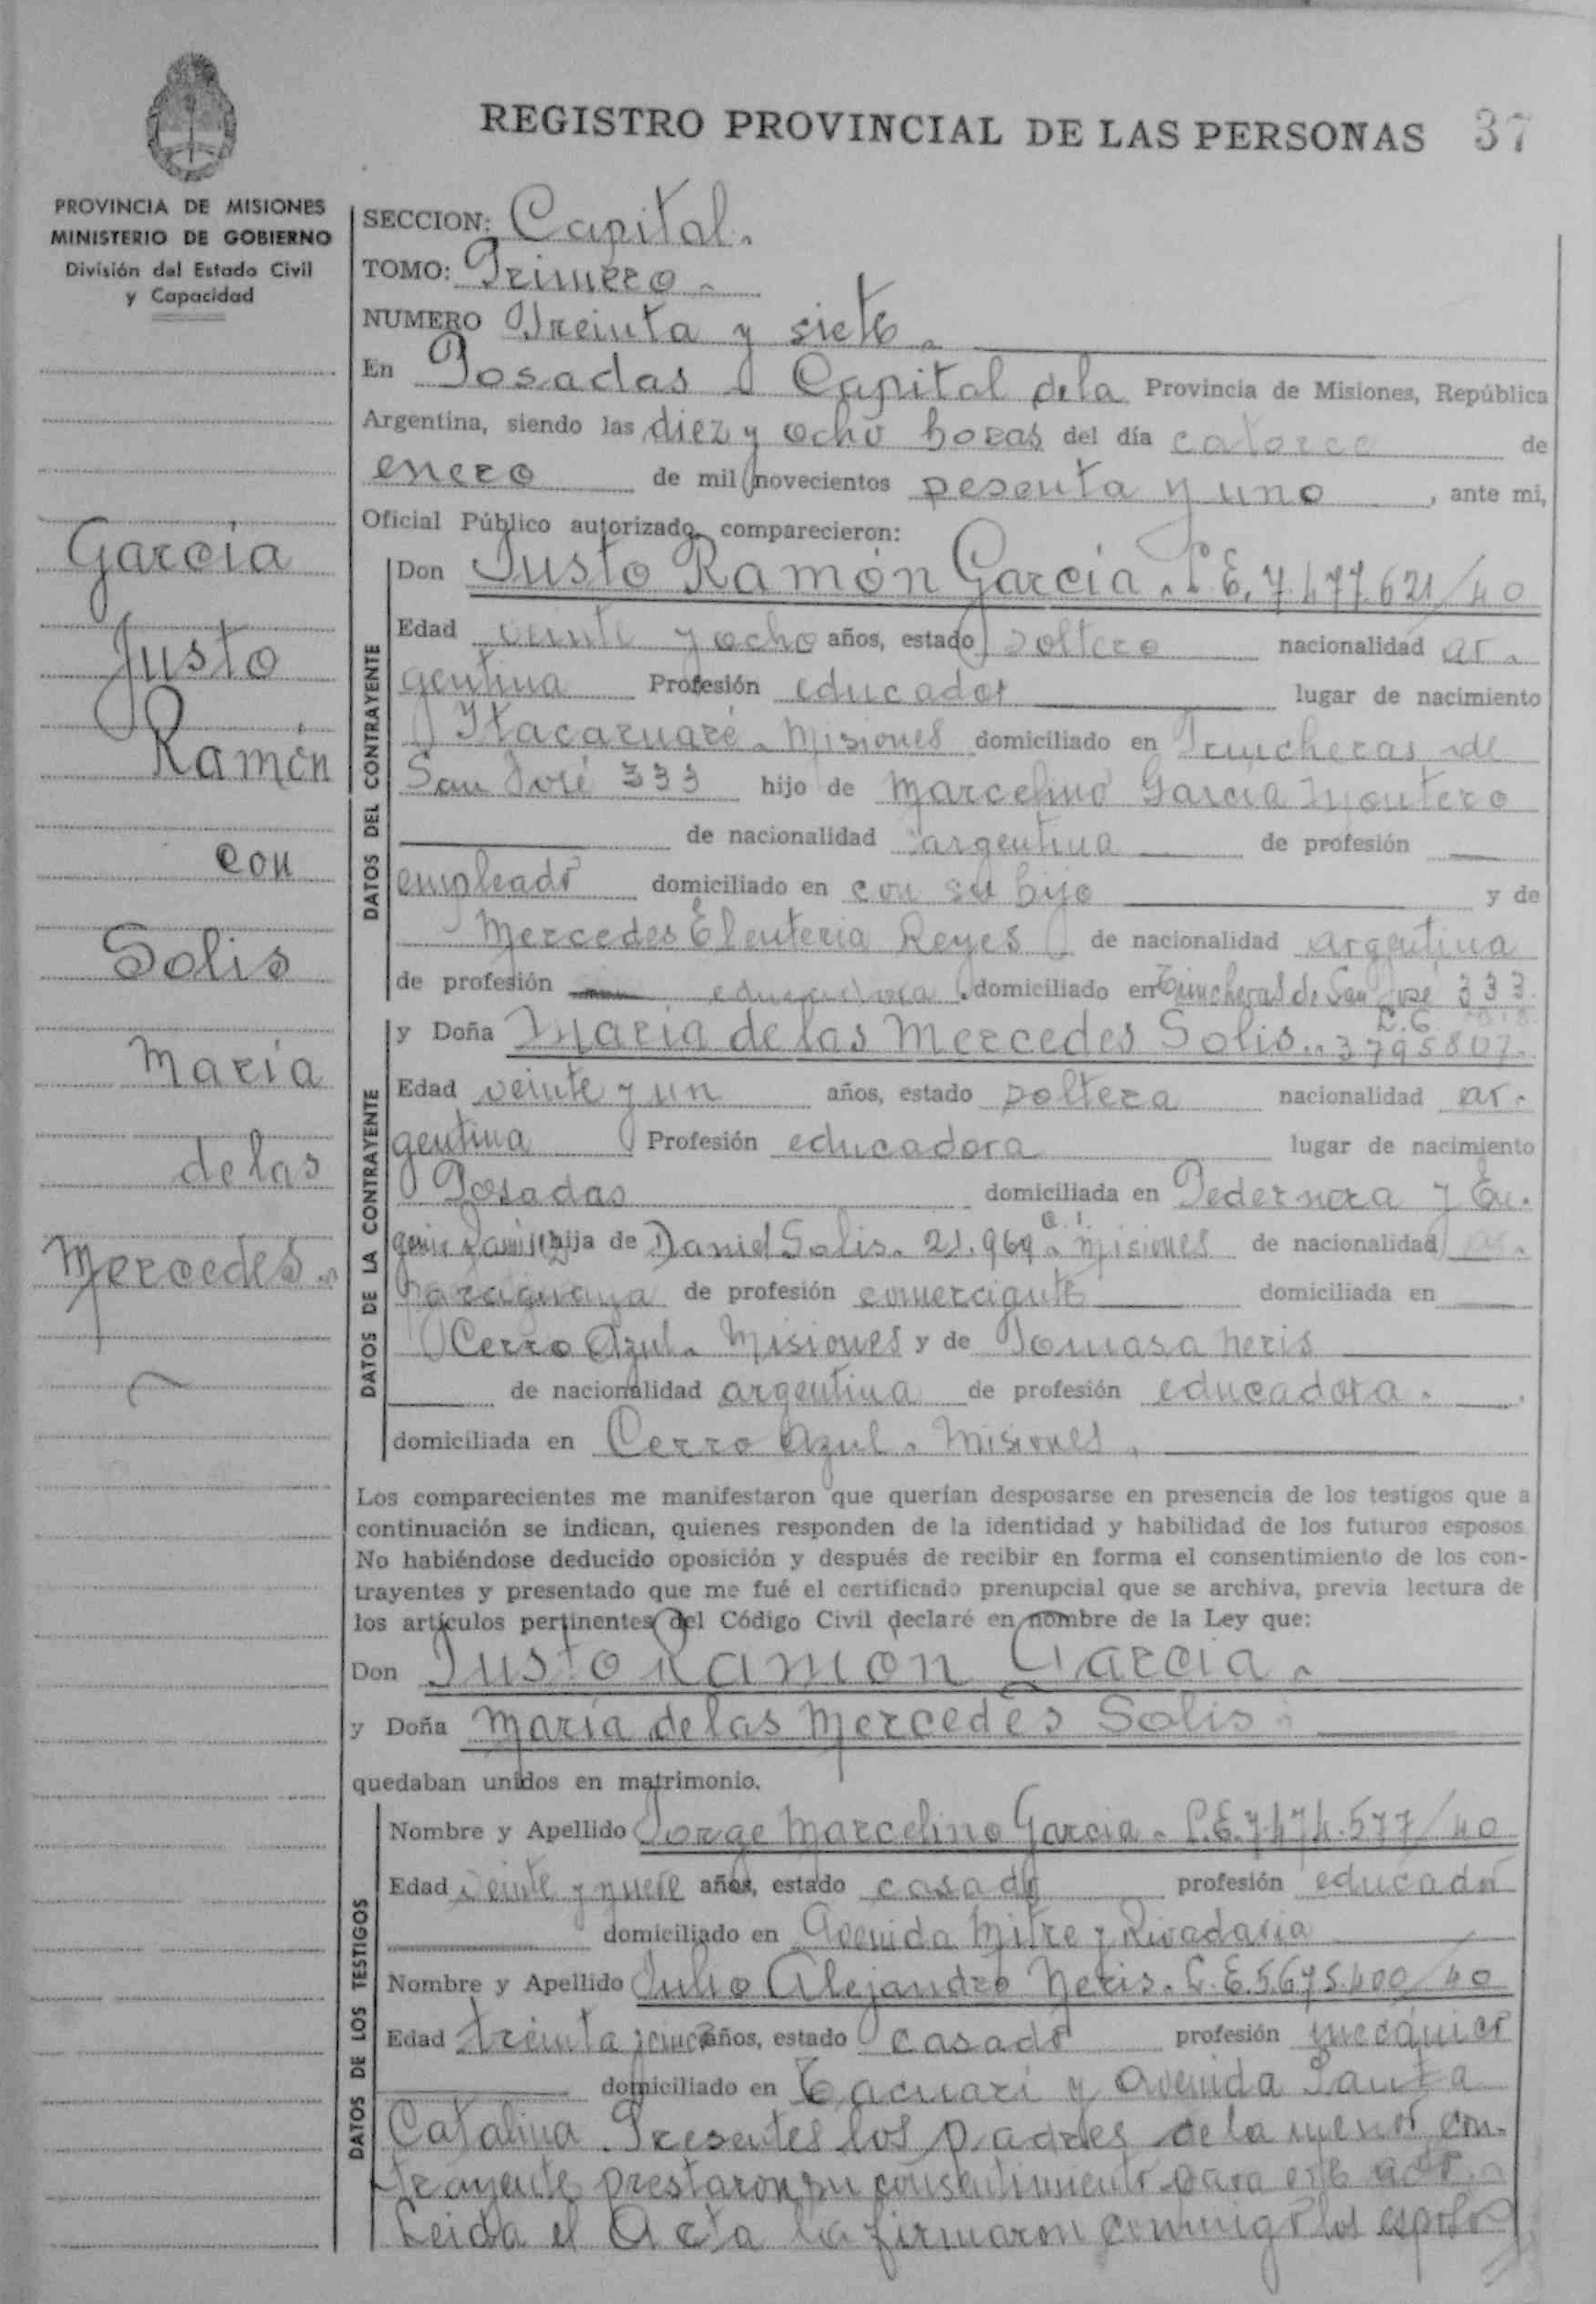 REGISTRO PROVINCIAL DE LAS PERSONAS 37
PROVINCIA DE MISIONES
MINISTERIO DE GOBIERNO
División del Estado Civil
y Capacidad
García
Justo
Ramón
con
Solis
María
de las
Mercedes.
SECCION: Capital.
TOMO: Primero.
NUMERO Treinta y siete.
En Posadas Capital de la Provincia de Misiones, República
Argentina, siendo las diez y ocho horas del día catorce de
enero de mil novecientos sesenta y uno, ante mi,
Oficial Público autorizado, comparecieron:
DATOS DEL CONTRAYENTE
Don Justo Ramón García. L.E. 7.477.621/40
Edad veinte y ocho años, estado soltero nacionalidad ar-
gentina Profesión educador lugar de nacimiento
Itacaruaré. Misiones domiciliado en Trincheras de
San José 333 hijo de Marcelino García Montero
de nacionalidad argentina de profesión
empleado domiciliado en con su hijo y de
Mercedes Eleuteria Reyes de nacionalidad argentina
de profesión educadora domiciliado en Trincheras de San José 333.
DATOS DE LA CONTRAYENTE
y Doña María de las Mercedes Solis.. L.C. 3795807.
Edad veinte y un años, estado soltera nacionalidad ar-
gentina Profesión educadora lugar de nacimiento
Posadas domiciliada en Pedernera y Eu-
genio Ramirez hija de Daniel Solis. C.I. 21.969. Misiones de nacionalidad
paraguaya de profesión comerciante domiciliada en
Cerro Azul. Misiones y de Tomasa Neris
de nacionalidad argentina de profesión educadora.
domiciliada en Cerro Azul. Misiones.
Los comparecientes me manifestaron que querían desposarse en presencia de los testigos que a
continuación se indican, quienes responden de la identidad y habilidad de los futuros esposos.
No habiéndose deducido oposición y después de recibir en forma el consentimiento de los con-
trayentes y presentado que me fué el certificado prenupcial que se archiva, previa lectura de
los artículos pertinentes del Código Civil declaré en nombre de la Ley que:
Don Justo Ramón García.
y Doña María de las Mercedes Solis
quedaban unidos en matrimonio.
DATOS DE LOS TESTIGOS
Nombre y Apellido Jorge Marcelino García. L.E. 7.474.577/40
Edad veinte y nueve años, estado casado profesión educador
domiciliado en Avenida Mitre y Rivadavia
Nombre y Apellido Julio Alejandro Neris. L.E. 5.675.400/40
Edad treinta y cinco años, estado casado profesión mecánico
domiciliado en Tacuari y Avenida Santa
Catalina. Presentes los padres de la menor con-
trayente prestaron su consentimiento para este acto.
Leida el Acta la firmaron conmigo los esposos